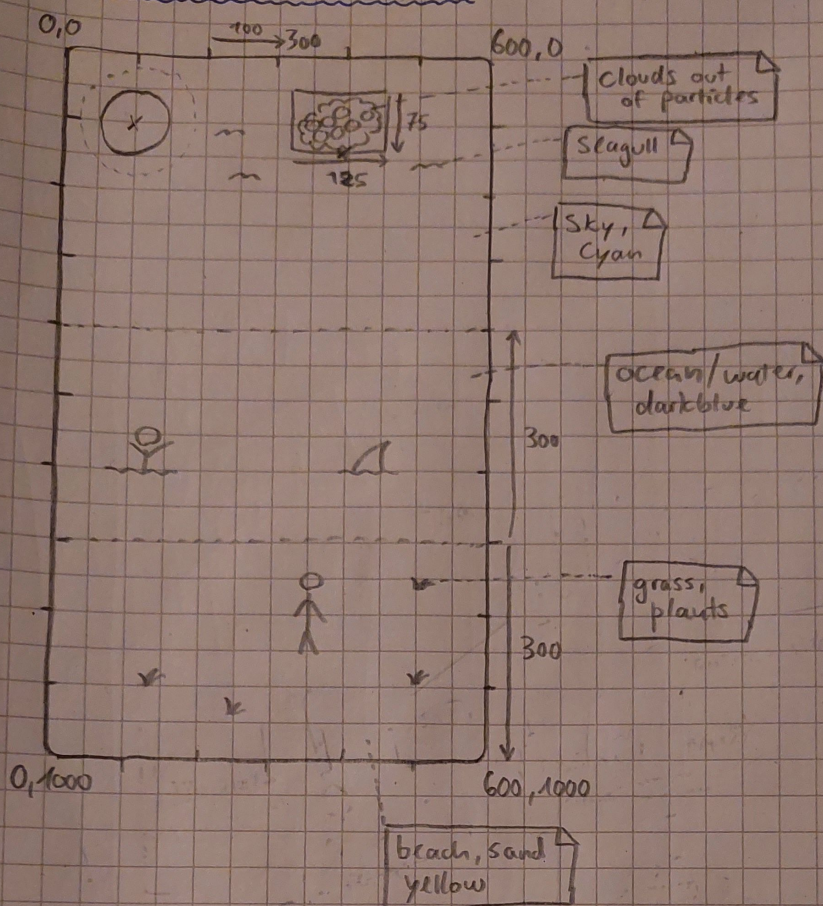 0,0
100
300
600,0
clouds out
of particles
75
Seagull
125
Sky,
Cyan
ocean/water,
darkblue
300
grass,
plants
300
0,1000
600,1000
beach, sand
yellow